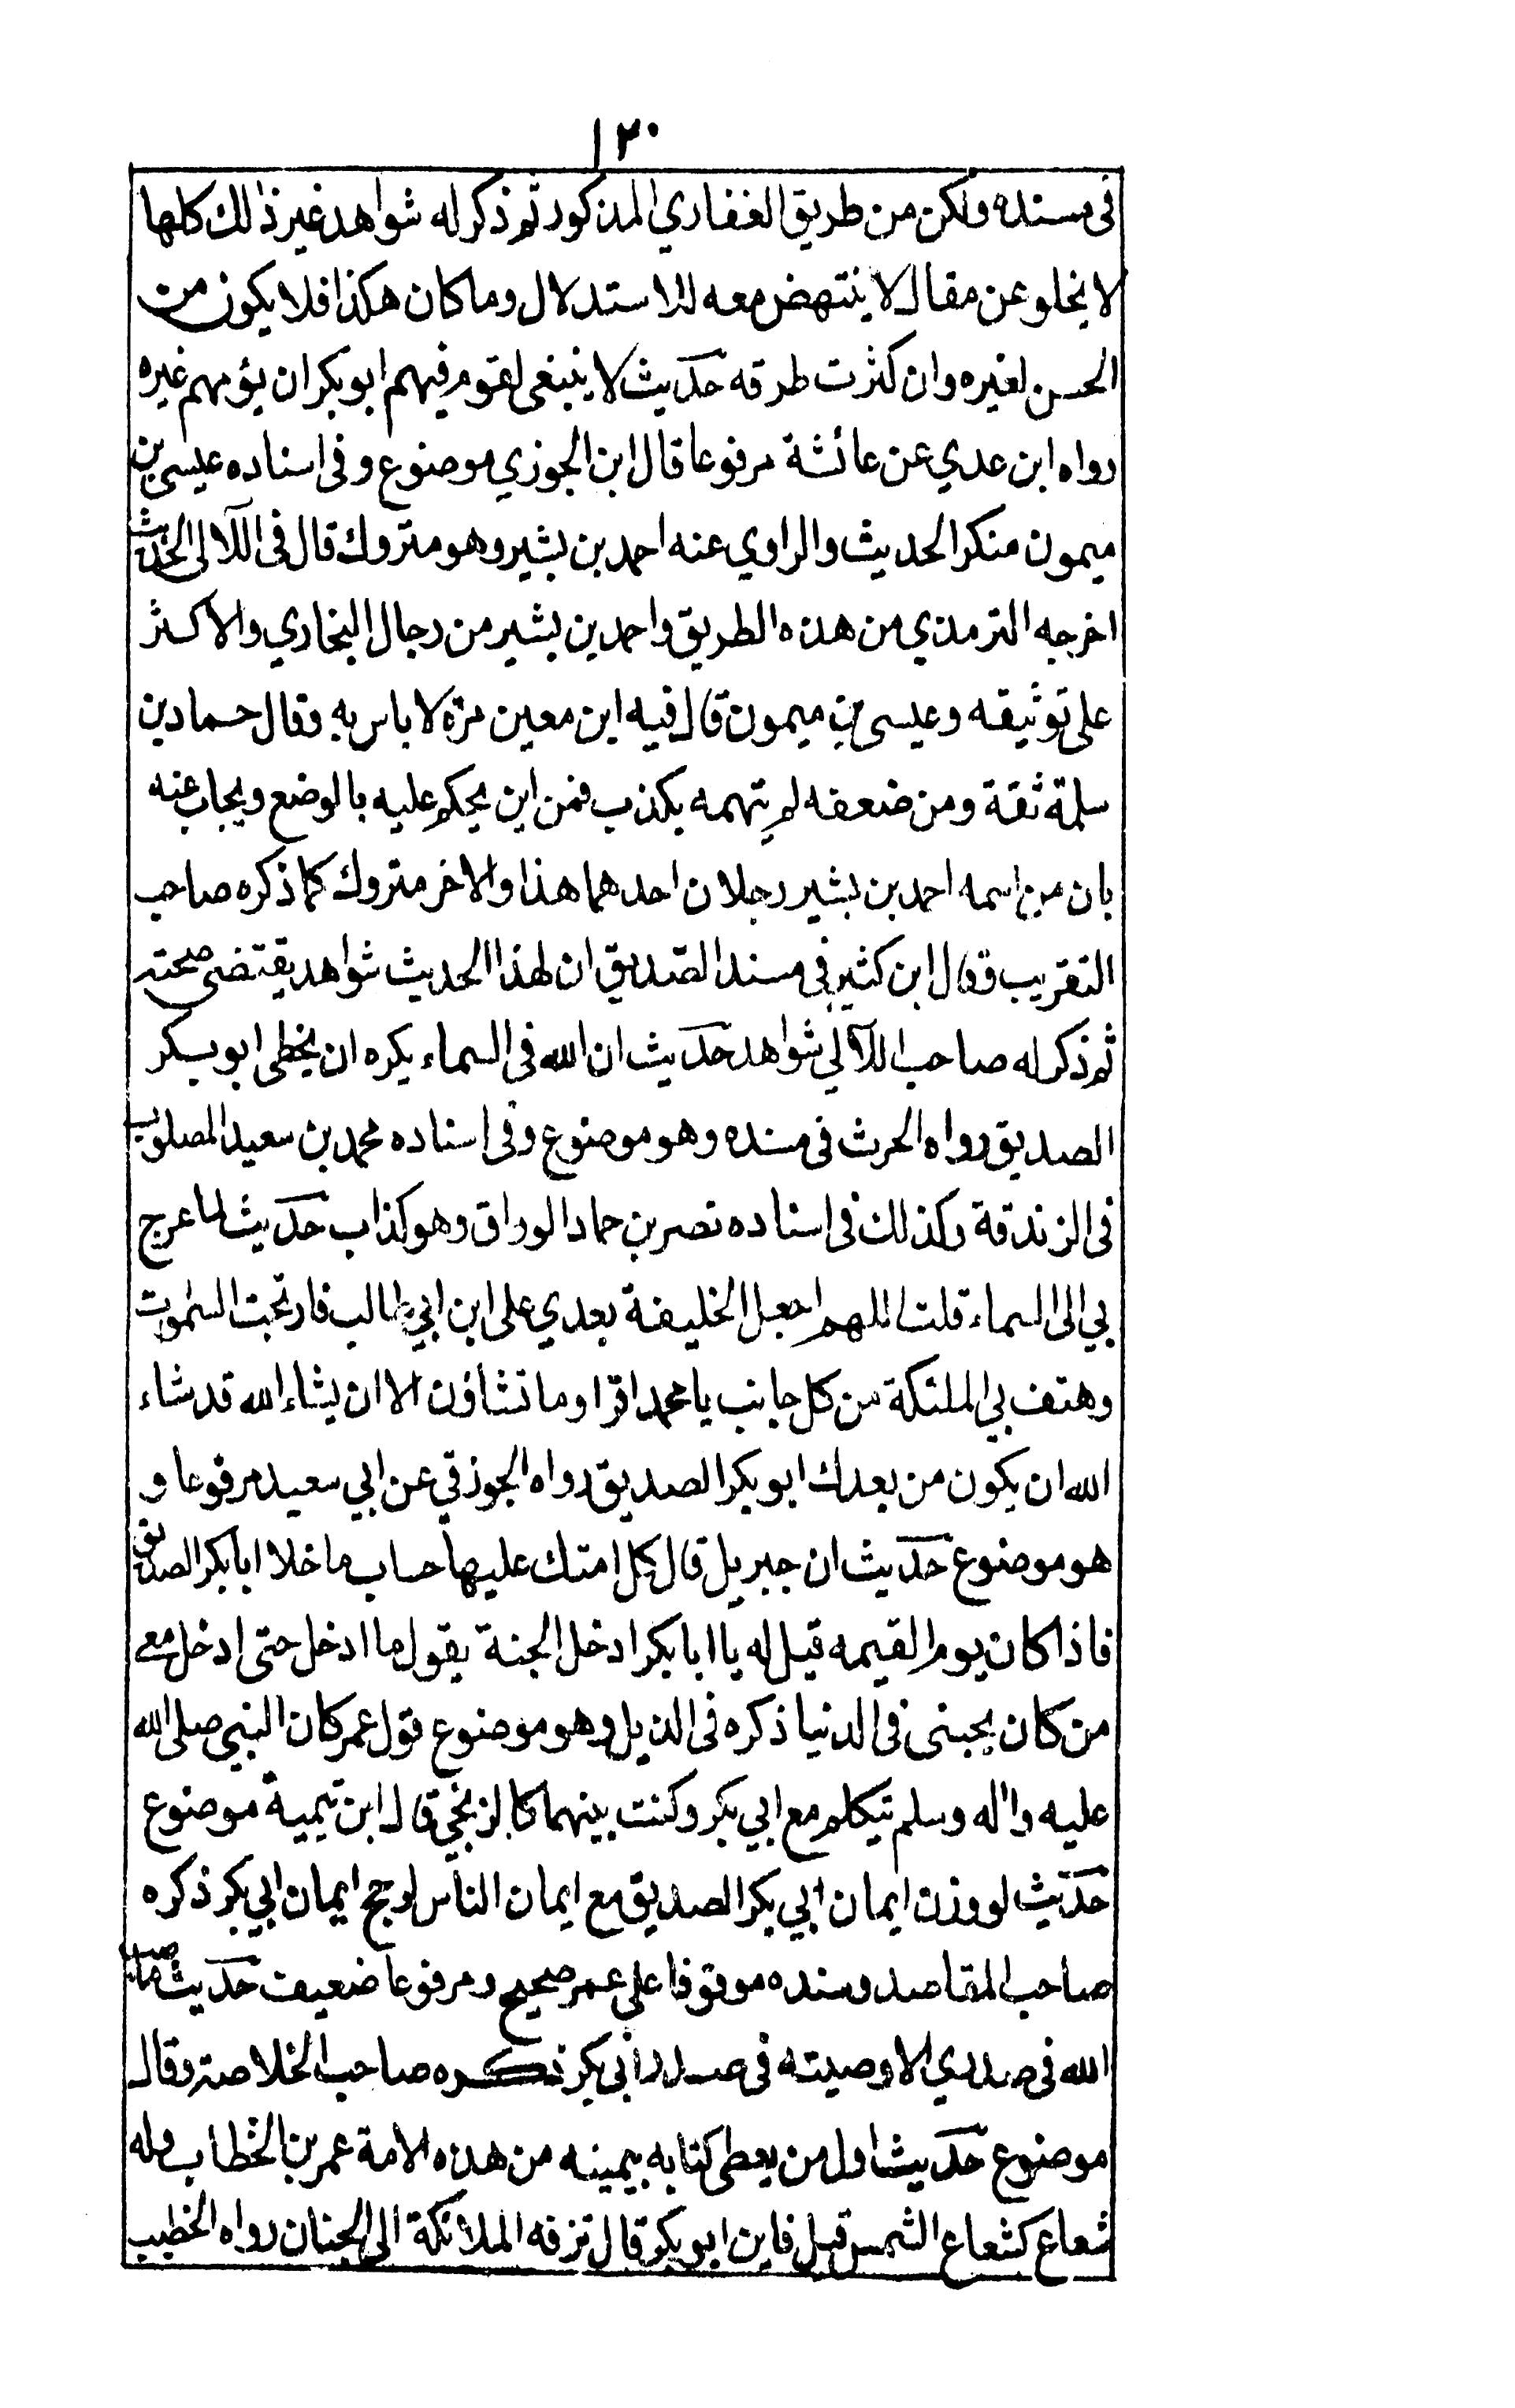 ١٢٠
فى مسنده ولكن من طريق الغفاري المذكور ثم ذكر له شواهد غير ذلك كلها
لا يخلو عن مقال لا ينتهض معه للاستدلال وما كان هكذا فلا يكون من
الحسن لغيره وان كثرت طرقه حديث لا ينبغى لقوم فيهم ابو بكر ان يؤمهم غيره
رواه ابن عدي عن عائشة مرفوعا قال ابن الجوزي موضوع وفى اسناده عيسى بن
ميمون منكر الحديث والراوي عنه احمد بن بشير وهو متروك قال فى اللآلى الحديث
اخرجه الترمذي من هذه الطريق واحمد بن بشير من رجال البخاري والاكثر
على توثيقه وعيسى بن ميمون قال فيه ابن معين مرة لا باس به وقال حماد بن
سلمة ثقة ومن ضعفه لم يتهمه بكذب فمن اين يحكم عليه بالوضع ويجاب عنه
بان من اسمه احمد بن بشير رجلان احدهما هذا والاخر متروك كما ذكره صاحب
التقريب وقال ابن كثير فى مسند الصديق ان لهذا الحديث شواهد يقتضى صحته
ثم ذكر له صاحب اللآلي شواهد حديث ان الله فى السماء يكره ان يخطى ابو بكر
الصديق رواه الحرث فى مسنده وهو موضوع وفى اسناده محمد بن سعيد المصلوب
فى الزندقة وكذلك فى اسناده نصر بن حماد الوراق وهو كذاب حديث لما عرج
بي الى السماء قلت اللهم اجعل الخليفة بعدي على ابن ابي طالب فارتجت السموت
وهتف بي الملئكة من كل جانب يا محمد اقرا وما تشاؤن الا ان يشاء الله قد شاء
الله ان يكون من بعدك ابو بكر الصديق رواه الجوزقي عن ابي سعيد مرفوعا و
هو موضوع حديث ان جبريل قال كل امتك عليها حساب ما خلا ابا بكر الصديق
فاذا كان يوم القيمه قيل له يا ابا بكر ادخل الجنة يقول ما ادخل حتى ادخل معى
من كان يحبنى فى الدنيا ذكره فى الذيل وهو موضوع قول عمر كان النبي صلى الله
عليه واله وسلم يتكلم مع ابي بكر وكنت بينهما كالزنجي قال ابن تيمية موضوع
حديث لو وزن ايمان ابي بكر الصديق مع ايمان الناس لرجح ايمان ابي بكر ذكره
صاحب المقاصد وسنده موقوفا على عمر صحيح ومرفوعا ضعيف حديث ما صب
الله فى صدري الا وصبته فى صدر أبى بكر ذكره صاحب الخلاصة وقال
موضوع حديث اول من يعطى كتابه بيمينه من هذه الامة عمر بن الخطاب وله
شعاع كشعاع الشمس قيل فاين ابو بكر قال تزفه الملائكة الى الجنان رواه الخطيب